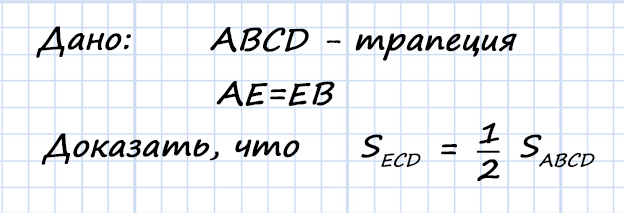 Дано: ABCD - трапеция
AE=EB
Доказать, что S_ECD = 1/2 S_ABCD